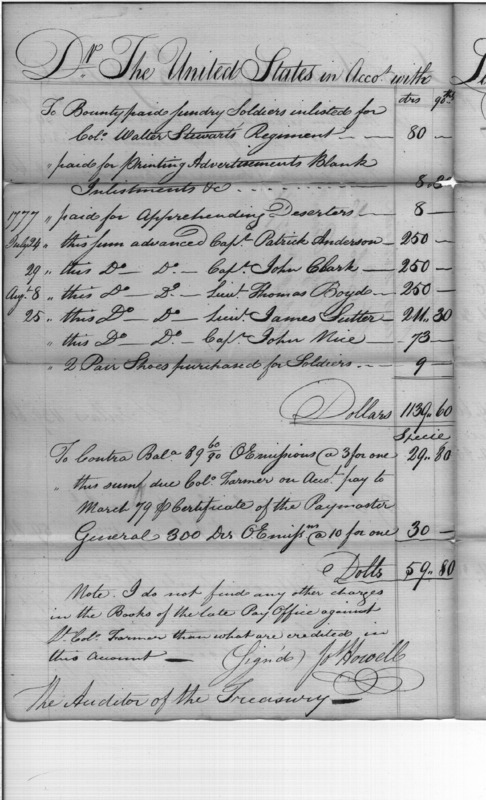 Dr The United States in Accot. with
drs 90ths
To Bounty paid sundry Soldiers inlisted for
Colo. Walter Stewarts Regiment — — 80 —
" paid for Printing Advertisements Blank
Inlistments &c - - - - - - - - -
1777 " paid for Apprehending Deserters — 8 —
July 24 " this sum advanced Capt. Patrick Anderson — 250 —
29 " this Do — Do — Capt. John Clark — 250 —
Augt. 8 " this Do — Do — Lieut. Thomas Boyd — 250 —
25 " this Do — Do — Lieut. James — 211.. 30
" this Do — Do — Capt. John Nice — 73 —
" 2 Pair Shoes purchased for Soldiers - - 9 —
Dollars 1139.. 60
Specie
To Contra Bala. 89 60/90 O Emissions @ 3 for one 29.. 80
" this sum due Colo. Farmer on Accot. pay to
March 79 Certificate of the Paymaster
General 300 Drs O Emissns @ 10 for one 30 —
Dolls 59.. 80
Note. I do not find any other charges
in the Books of the late Pay Office against
Lt. Colo. Farmer than what are credited in
this Account — (Sign'd) Jos Howell
The Auditor of the Treasury —